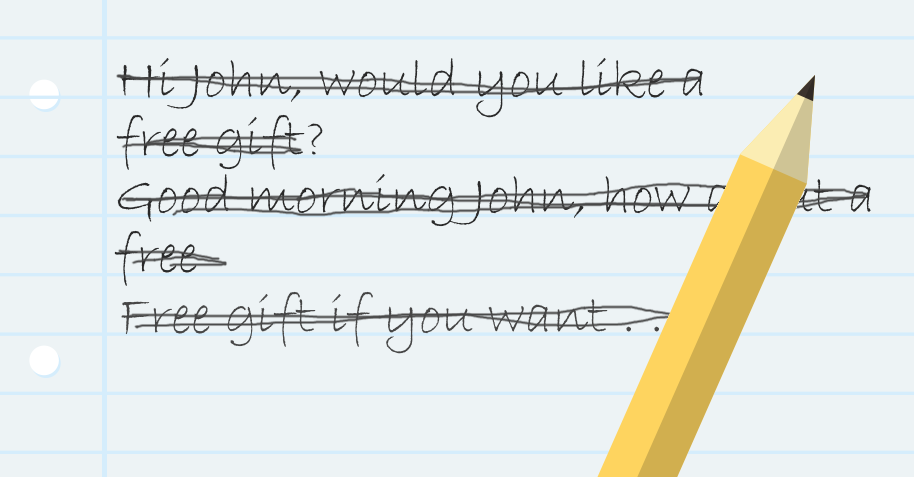 Hi John, would you like a
free gift?
Good morning John, how a
free
Free gift if you want . .